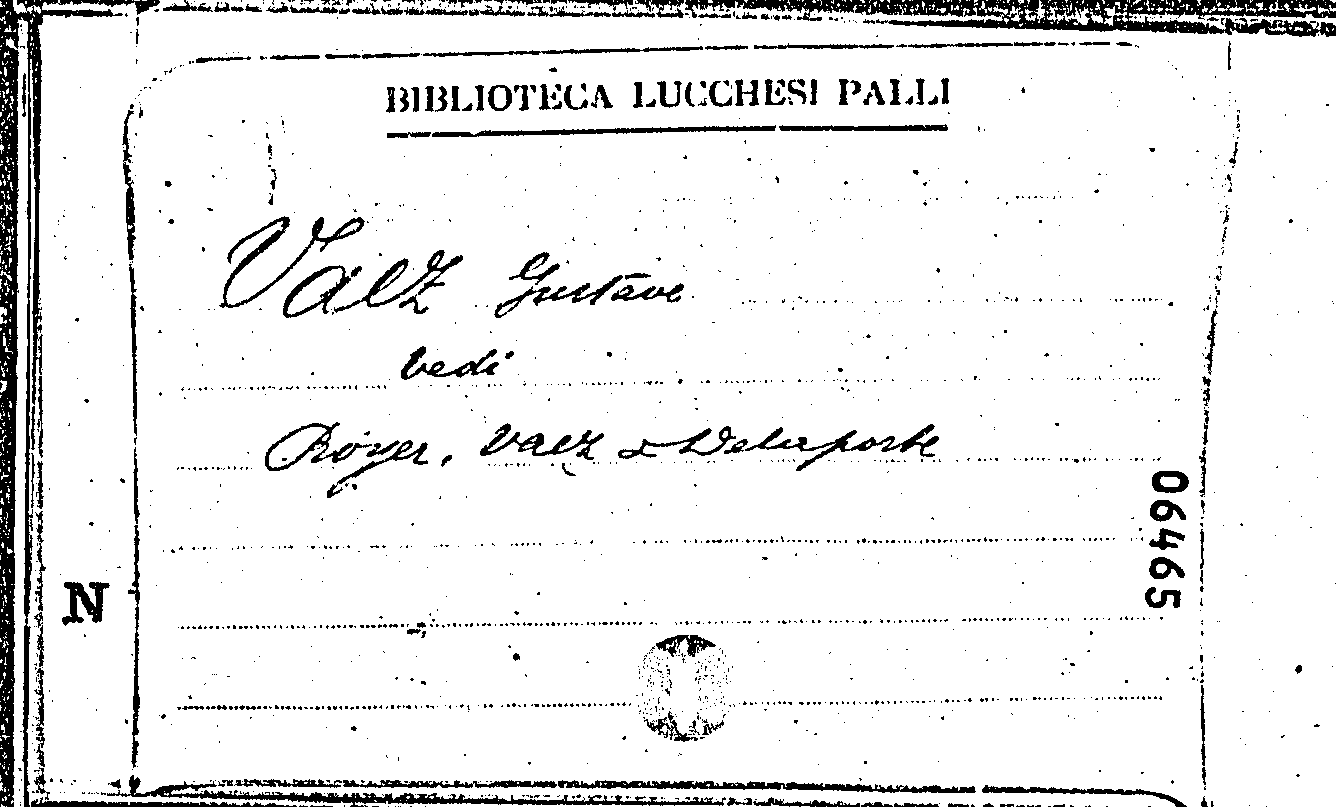 BIBLIOTECA LUCCHESI PALLI
Vaez Gustave
vedi
Royer, Vaez & Delaporte
06465
N